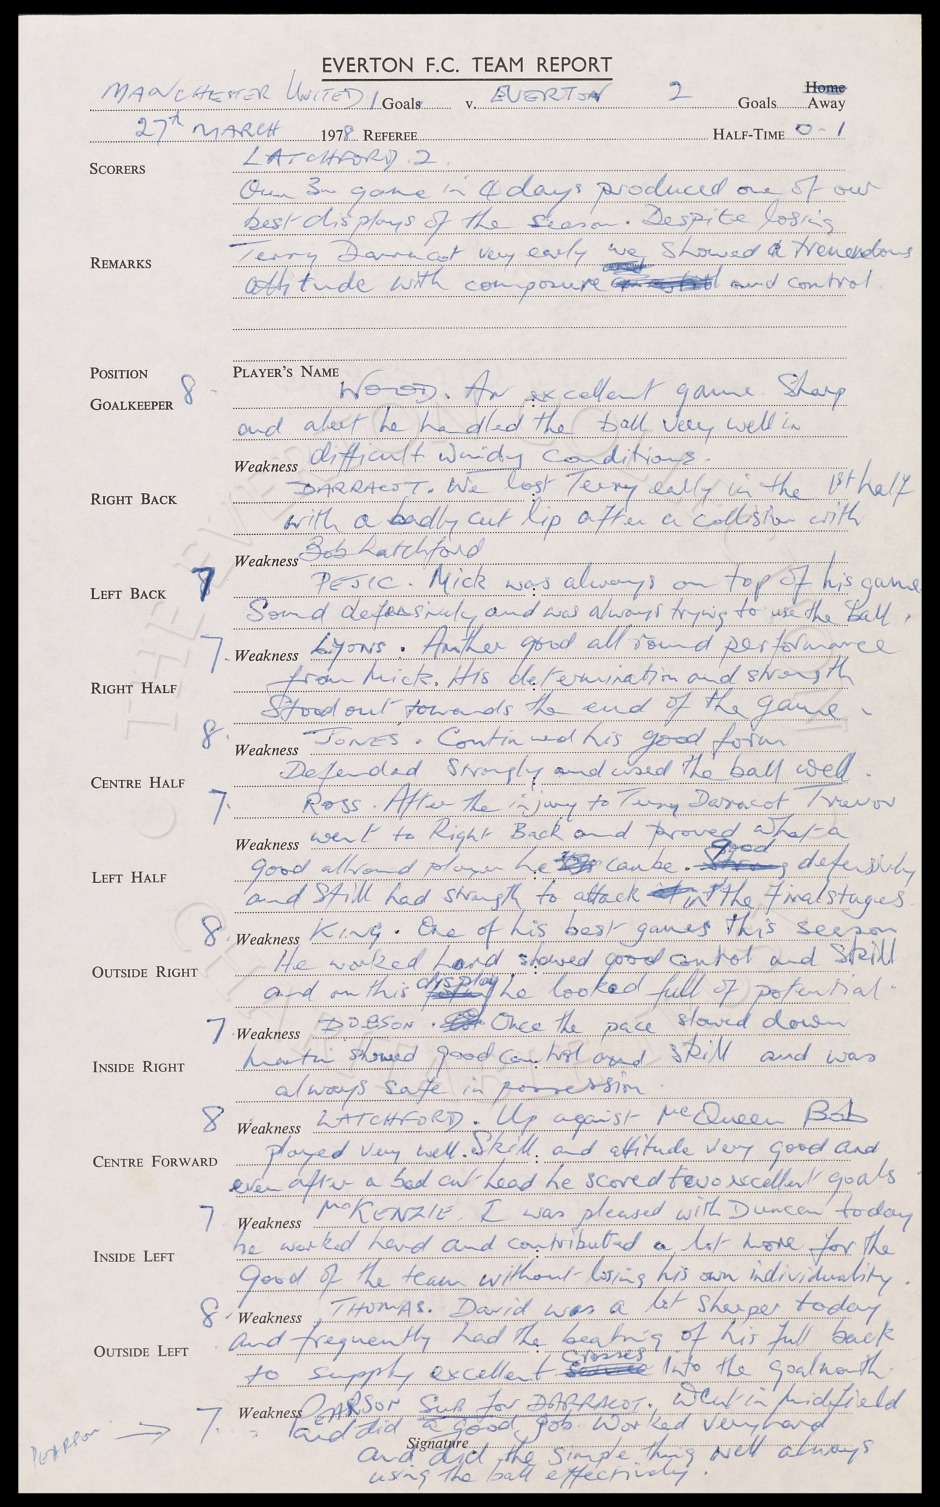 EVERTON F.C. TEAM REPORT
MANCHESTER UNITED 1 Goals v. EVERTON 2 Goals Home Away
27th MARCH 1978 REFEREE HALF-TIME 0-1
SCORERS LATCHFORD. 2.
Our 3rd game in 4 days produced one of our
best displays of the season. Despite losing
REMARKS Terry Darracot very early we showed a tremendous
attitude with composure and control.
POSITION PLAYER'S NAME
GOALKEEPER 8. WOOD. An excellent game. Sharp
and alert he handled the ball very well in
Weakness difficult windy conditions.
RIGHT BACK DARRACOT. We lost Terry early in the 1st half
with a badly cut lip after a collision with
Weakness Bob Latchford
LEFT BACK 7 PEJIC. Mick was always on top of his game
Sound defensively and was always trying to use the ball.
7. Weakness Lyons. Another good all round performance
RIGHT HALF from Mick. His determination and strength
Stood out towards the end of the game.
8. Weakness JONES. Continued his good form
CENTRE HALF Defended strongly and used the ball well.
7. ROSS. After the injury to Terry Darracot Trevor
Weakness went to Right Back and proved what a
LEFT HALF good allround player he can be. good defensively
and still had strength to attack in the final stages.
8. Weakness KING. One of his best games this season
OUTSIDE RIGHT He worked hard showed good control and skill
and on this display he looked full of potential.
7. Weakness DOBSON. Once the pace slowed down
INSIDE RIGHT Martin showed good control and skill and was
always safe in possession.
8 Weakness LATCHFORD. Up against McQueen Bob
CENTRE FORWARD played very well. Skill and attitude very good and
even after a bad cut head he scored two excellent goals
7 Weakness McKENZIE. I was pleased with Duncan today
INSIDE LEFT he worked hard and contributed a lot more for the
good of the team without losing his own individuality.
8. Weakness THOMAS. David was a lot sharper today
OUTSIDE LEFT and frequently had the beating of his full back
to supply excellent crosses into the goalmouth.
7. Weakness PEARSON Sub for DARRACOT. Went in midfield
PEARSON → and did a good job. Worked very hard
Signature and did the simple thing well always
using the ball effectively.